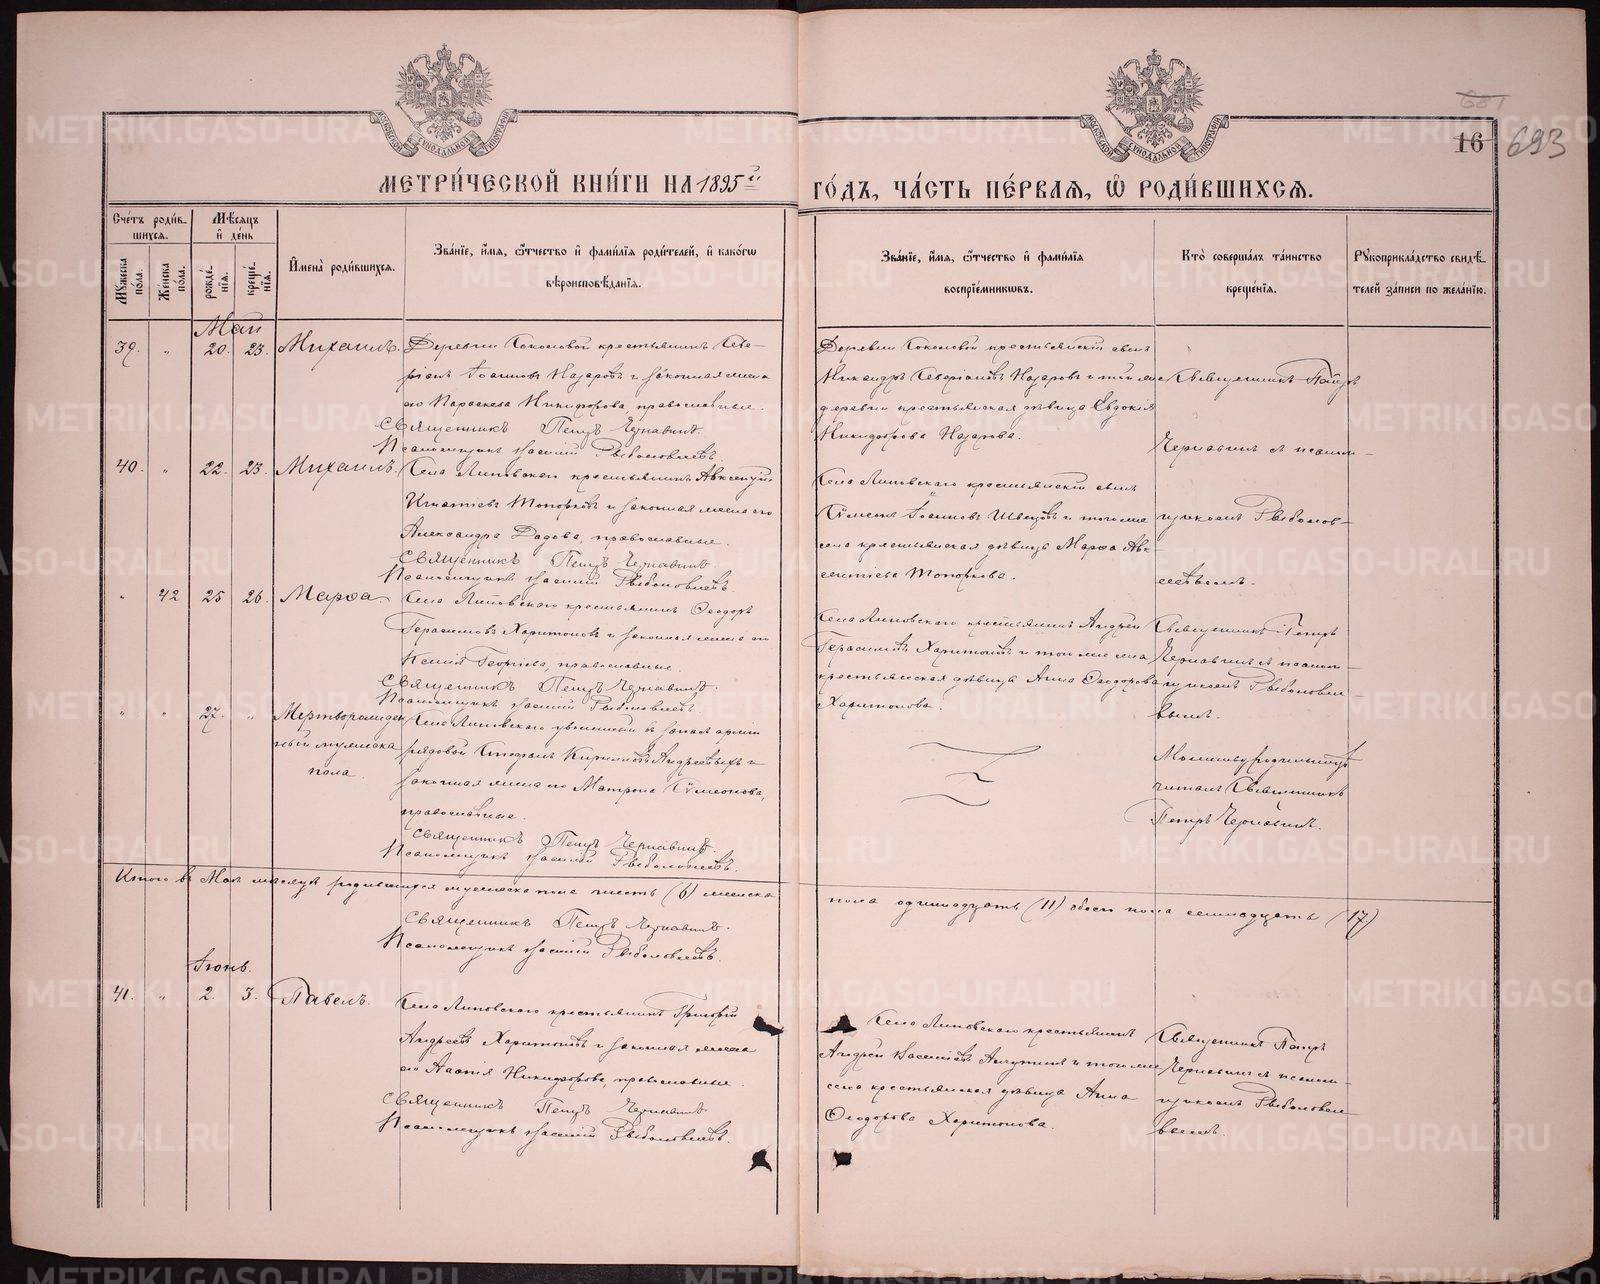 МЕТРИ́ЧЕСКОЙ КНИ́ГИ НА 1895й ГО́ДЪ, ЧА́СТЬ ПЕ́РВАѦ, Ѡ РОДИ́ВШИХСѦ.
681
16 693
Сче́тъ роди́вшихсѧ.
Мѣ́сѧцъ и де́нь
Мꙋ́жеска по́ла.
Же́нска по́ла.
рожде́нїѧ.
креще́нїѧ.
Имена̀ роди́вшихсѧ.
Зва́нїе, и́мѧ, ѻ́тчество и фами́лїѧ роди́телей, и како́гѡ
вѣроисповѣ́данїѧ.
Зва́нїе, и́мѧ, ѻ́тчество и фами́лїѧ
воспрїе́мникѡвъ.
Кто̀ соверша́лъ та́инство
креще́нїѧ.
Рꙋкоприкла́дство свидѣ́телей за́писи по жела́нїю.
Май
39. " 20. 23. Михаилъ.
Деревни Соколовой крестьянинъ Севе-
ріанъ Іоанновъ Назаровъ и законная жена
его Параскева Никифорова, православные.
Священникъ Петръ Чернавинъ.
Псаломщикъ Василій Рыболовлевъ.
Деревни Соколовой крестьянскій сынъ
Никандръ Северіановъ Назаровъ и той же
деревни крестьянская дѣвица Евдокія
Никифорова Назарова.
Священникъ Петръ
Чернавинъ съ псалом-
40. " 22. 23. Михаилъ.
Села Липовскаго крестьянинъ Авксентій
Игнатіевъ Топорковъ и законная жена его
Александра, православные.
Священникъ Петръ Чернавинъ
Псаломщикъ Василій Рыболовлевъ.
Села Липовскаго крестьянскій сынъ
Сѵмеонъ Іоанновъ Швецовъ и того же
села крестьянская дѣвица Марѳа Авк-
сентіева Топоркова.
щикомъ Рыболов-
левымъ.
" 42 25 26. Марѳа.
Села Липовскаго крестьянинъ Ѳеодоръ
Герасимовъ Харитоновъ и законная жена его
Ксенія Георгіева, православные.
Священникъ Петръ Чернавинъ.
Псаломщикъ Василій Рыболовлевъ.
Села Липовскаго крестьянинъ Андрей
Герасимовъ Харитоновъ и того же села
крестьянская дѣвица Анна Ѳеодорова
Харитонова.
Священникъ Петръ
Чернавинъ съ псалом-
щикомъ Рыболовле-
вымъ.
" " 27. " Мертворожден
ный мужеска
пола.
Села Липовскаго уволенный въ запасъ арміи
рядовой Стефанъ Кирилловъ Андреевыхъ и
законная жена его Матрона Сѵмеонова,
православные.
Священникъ Петръ Чернавинъ.
Псаломщикъ Василій Рыболовлевъ.
Молитву родильницѣ
читалъ Священникъ
Петръ Чернавинъ.
Итого въ Маѣ мѣсяцѣ родившихся мужеска пола шесть (6) женска
пола одиннадцать (11) обоего пола семнадцать (17)
Священникъ Петръ Чернавинъ.
Псаломщикъ Василій Рыболовлевъ.
Іюнь.
41. " 2. 3. Павелъ.
Села Липовскаго крестьянинъ Григорій
Андреевъ Харитоновъ и законная жена
его Никифорова, православные.
Священникъ Петръ Чернавинъ
Псаломщикъ Василій Рыболовлевъ.
Села Липовскаго крестьянинъ
Андрей Васильевъ и того же
села крестьянская дѣвица Анна
Ѳеодорова Харитонова.
Священникъ Петръ
Чернавинъ съ псалом-
щикомъ Рыболовле-
вымъ.
METRIKI.GASO-URAL.RU